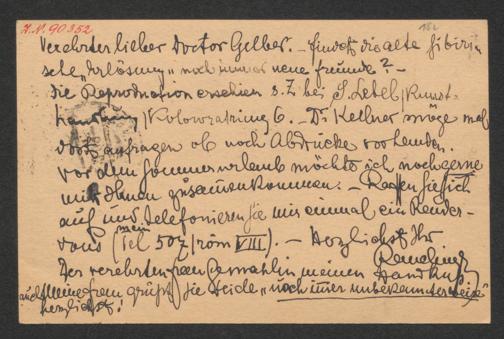 H.N. 90352
182
Verehrter lieber Doctor Gelber. – Findet die alte sibiri-
sche „Erlösung" noch immer neue Freunde? –
Die Reproduction erschien s. Z. bei Kunst-
handlung Kolowratring 6. – Dr Kellner möge mal
dort anfragen ob noch Abdrücke vorhanden.
Vor dem Sommerurlaub möchte ich noch gerne
mit Ihnen zusammenkommen. – Raffen Sie sich
auf und telefonieren Sie mir einmal ein Rendez-
vous (mein Tel 507/röm VIII). – Herzlichst Ihr
Der verehrten Frau Gemahlin meinen Handkuß
auch Meine Frau grüßt Sie beide „noch immer unbekannterweise"
herzlichst!